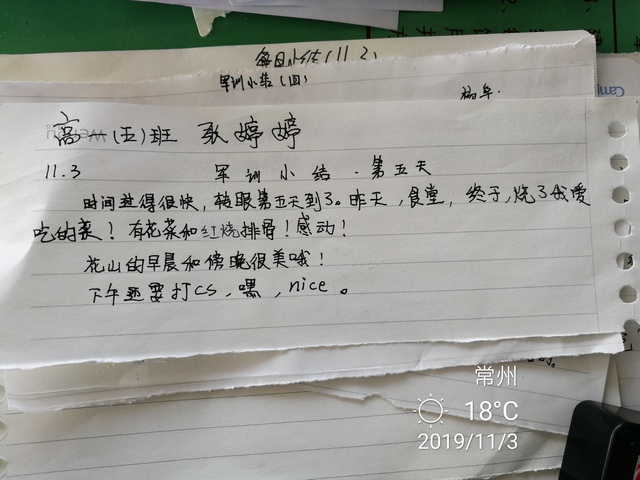 每日小结(11.2)
军训小结(四)
高一(五)班 耿婷婷
11.3 军训小结·第五天
时间过得很快，转眼第五天到了。昨天，食堂，终于，烧了我爱
吃的菜！有花菜和红烧排骨！感动！
花山的早晨和傍晚很美哦！
下午还要打CS，嘿，nice。
常州
18°C
2019/11/3